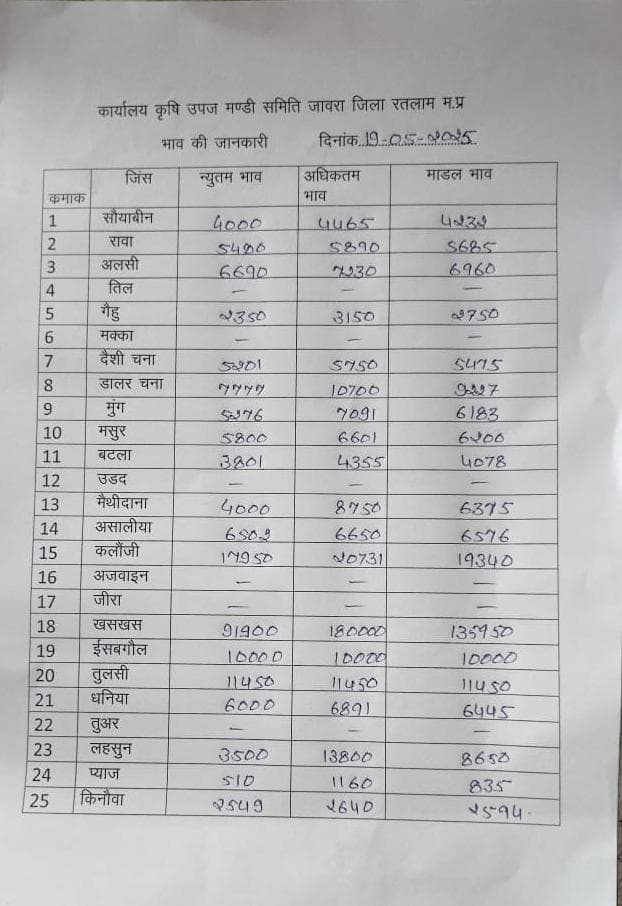 कार्यालय कृषि उपज मण्डी समिति जावरा जिला रतलाम म.प्र
भाव की जानकारी दिनांक..19-05-२०२5..
कमाक जिंस न्युतम भाव अधिकतम भाव माडल भाव
1 सौयाबीन 4000 4465 4२3२
2 रावा 5480 5890 5685
3 अलसी 6690 7२30 6960
4 तिल — — —
5 गैहु २350 3150 २750
6 मक्का — — —
7 दैशी चना 5२01 5750 5475
8 डालर चना 7777 10700 9२२7
9 मुंग 5२76 7091 6183
10 मसुर 5800 6601 6२00
11 बटला 3801 4355 4078
12 उडद — — —
13 मैथीदाना 4000 8750 6375
14 असालीया 650२ 6650 6576
15 कलौंजी 17950 २0731 19340
16 अजवाइन — — —
17 जीरा — — —
18 खसखस 91900 180000 135950
19 ईसबगौल 10000 10000 10000
20 तुलसी 11450 11450 11450
21 धनिया 6000 6891 6445
22 तुअर — — —
23 लहसुन 3500 13800 8650
24 प्याज 510 1160 835
25 किनौवा २549 २640 २594.